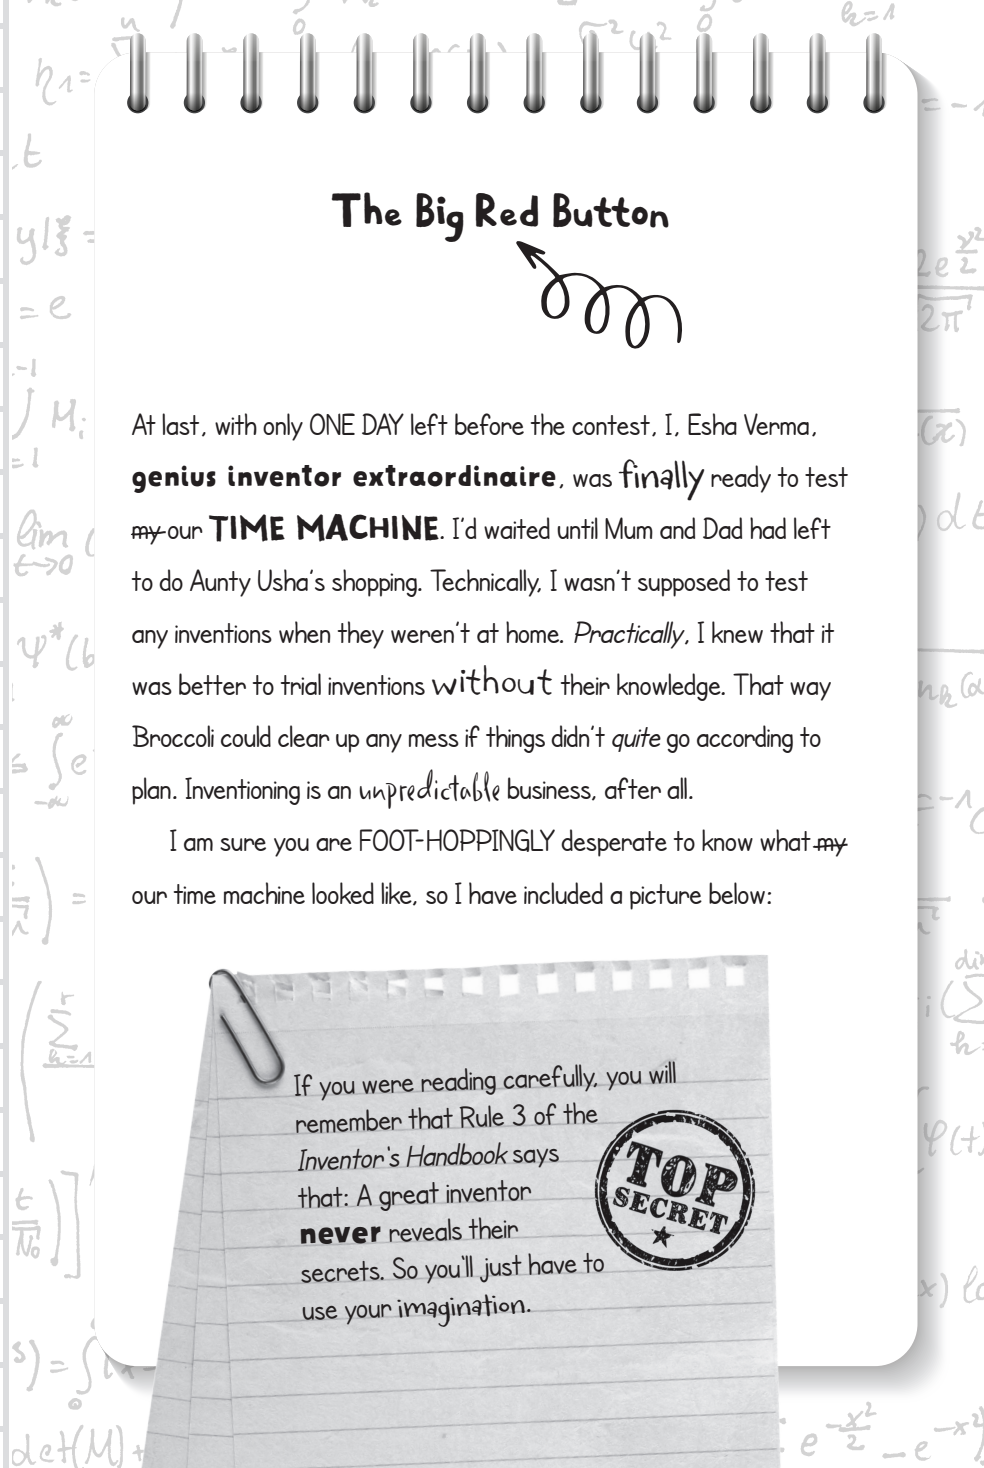 The Big Red Button
At last, with only ONE DAY left before the contest, I, Esha Verma,
genius inventor extraordinaire, was finally ready to test
my our TIME MACHINE. I'd waited until Mum and Dad had left
to do Aunty Usha's shopping. Technically, I wasn't supposed to test
any inventions when they weren't at home. Practically, I knew that it
was better to trial inventions without their knowledge. That way
Broccoli could clear up any mess if things didn't quite go according to
plan. Inventioning is an unpredictable business, after all.
I am sure you are FOOT-HOPPINGLY desperate to know what my
our time machine looked like, so I have included a picture below:
If you were reading carefully, you will
remember that Rule 3 of the
Inventor's Handbook says
that: A great inventor
never reveals their
secrets. So you'll just have to
use your imagination.
TOP
SECRET